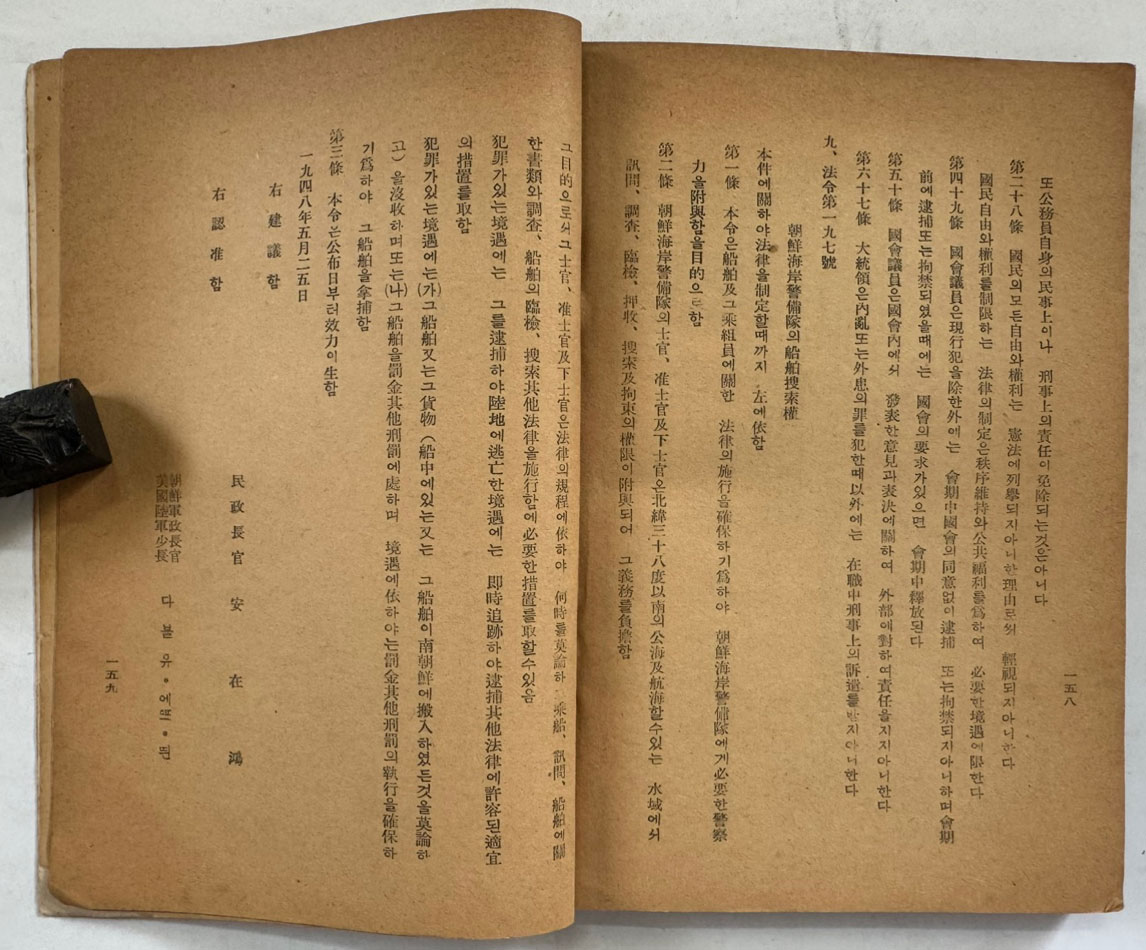 또公務員自身의民事上이나 刑事上의責任이免除되는것은아니다
第二十八條 國民의모든自由와權利는 憲法에列擧되지아니한理由로써 輕視되지아니한다
國民自由와權利를制限하는 法律의制定은秩序維持와公共福利를爲하여 必要한境遇에限한다
第四十九條 國會議員은現行犯을除한外에는 會期中國會의同意없이逮捕 또는拘禁되지아니하며會期
前에逮捕또는拘禁되였을때에는 國會의要求가있으면 會期中釋放된다
第五十條 國會議員은國會內에서 發表한意見과表決에關하여 外部에對하여責任을지지아니한다
第六十七條 大統領은內亂또는外患의罪를犯한때以外에는 在職中刑事上의訴追를받지아니한다
九、法令第一九七號
朝鮮海岸警備隊의船舶搜索權
本件에關하야法律을制定할때까지 左에依함
第一條 本令은船舶及그乘組員에關한 法律의施行을確保하기爲하야 朝鮮海岸警備隊에게必要한警察
力을附與함을目的으로함
第二條 朝鮮海岸警備隊의士官、准士官及下士官은北緯三十八度以南의公海及航海할수있는 水域에서
訊問、調査、臨檢、押收、搜索及拘束의權限이附與되어 그義務를負擔함
一五八
그目的으로써그士官、准士官及下士官은法律의規程에依하야 何時를莫論하고乘船、訊問、船舶에關
한書類와調査、船舶의臨檢、搜索其他法律을施行함에必要한措置를取할수있음
犯罪가있는境遇에는 그를逮捕하야陸地에逃亡한境遇에는 即時追跡하야逮捕其他法律에許容된適宜
의措置를取함
犯罪가있는境遇에는(가)그船舶又는그貨物(船中에있는又는 그船舶이南朝鮮에搬入하였든것을莫論하
고)을沒收하며또는(나)그船舶을罰金其他刑罰에處하며 境遇에依하야는罰金其他刑罰의執行을確保하
기爲하야 그船舶을拿捕함
第三條 本令은公布日부터效力이生함
一九四八年五月二五日
右建議함
右認准함
民政長官 安在鴻
朝鮮軍政長官
美國陸軍少長 다블유•에프•띈
一五九